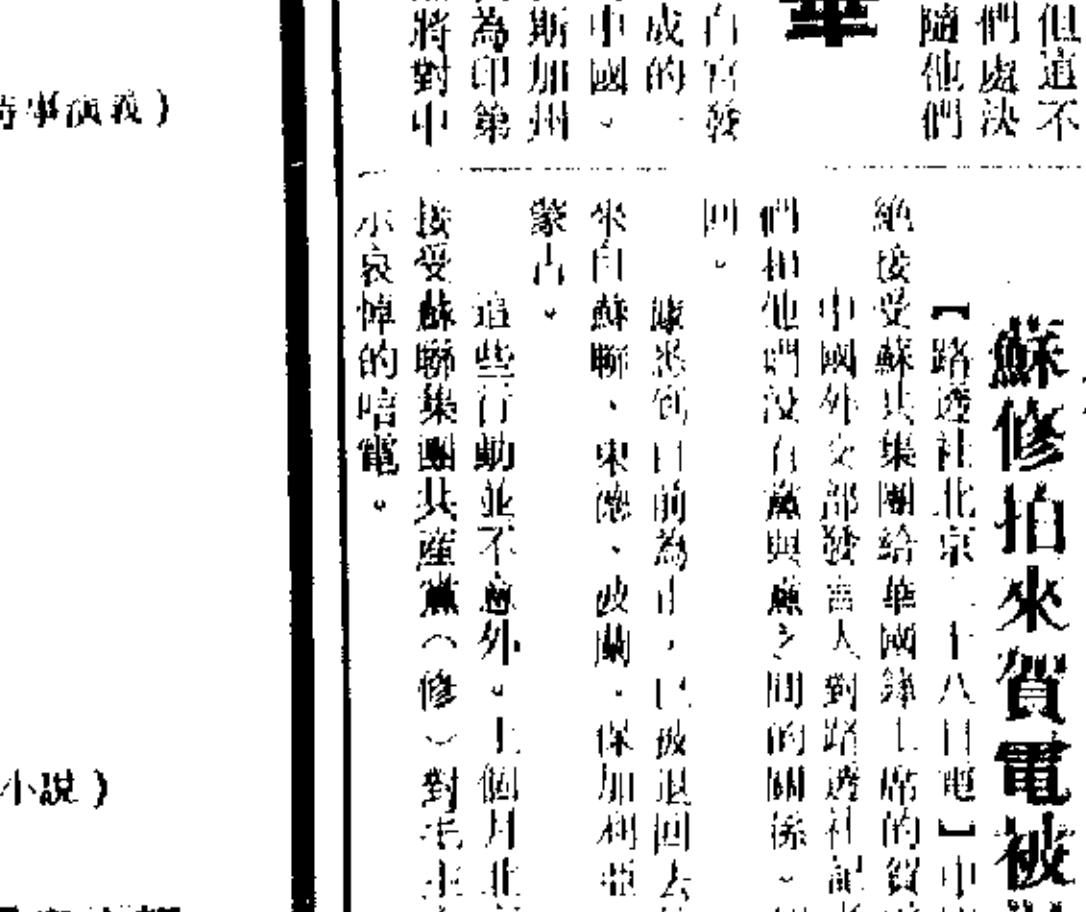 但這不
們處決
隨他們
華
白宮發
成的一
中國。
斯加州
為印第
將對中
蘇修拍來賀電被
【路透社北京二十八日電】中
絕接受蘇共集團給華國鋒主席的賀
中國外交部發言人對路透社記
們和他們沒有黨與黨之間的關係。
回。
據悉到目前為止，已被退回去
來自蘇聯、東德、波蘭、保加利亞
蒙古。
這些行動並不意外。上個月北
接受蘇聯集團共產黨（修）對毛主
示哀悼的唁電。
時事演義）
小說）